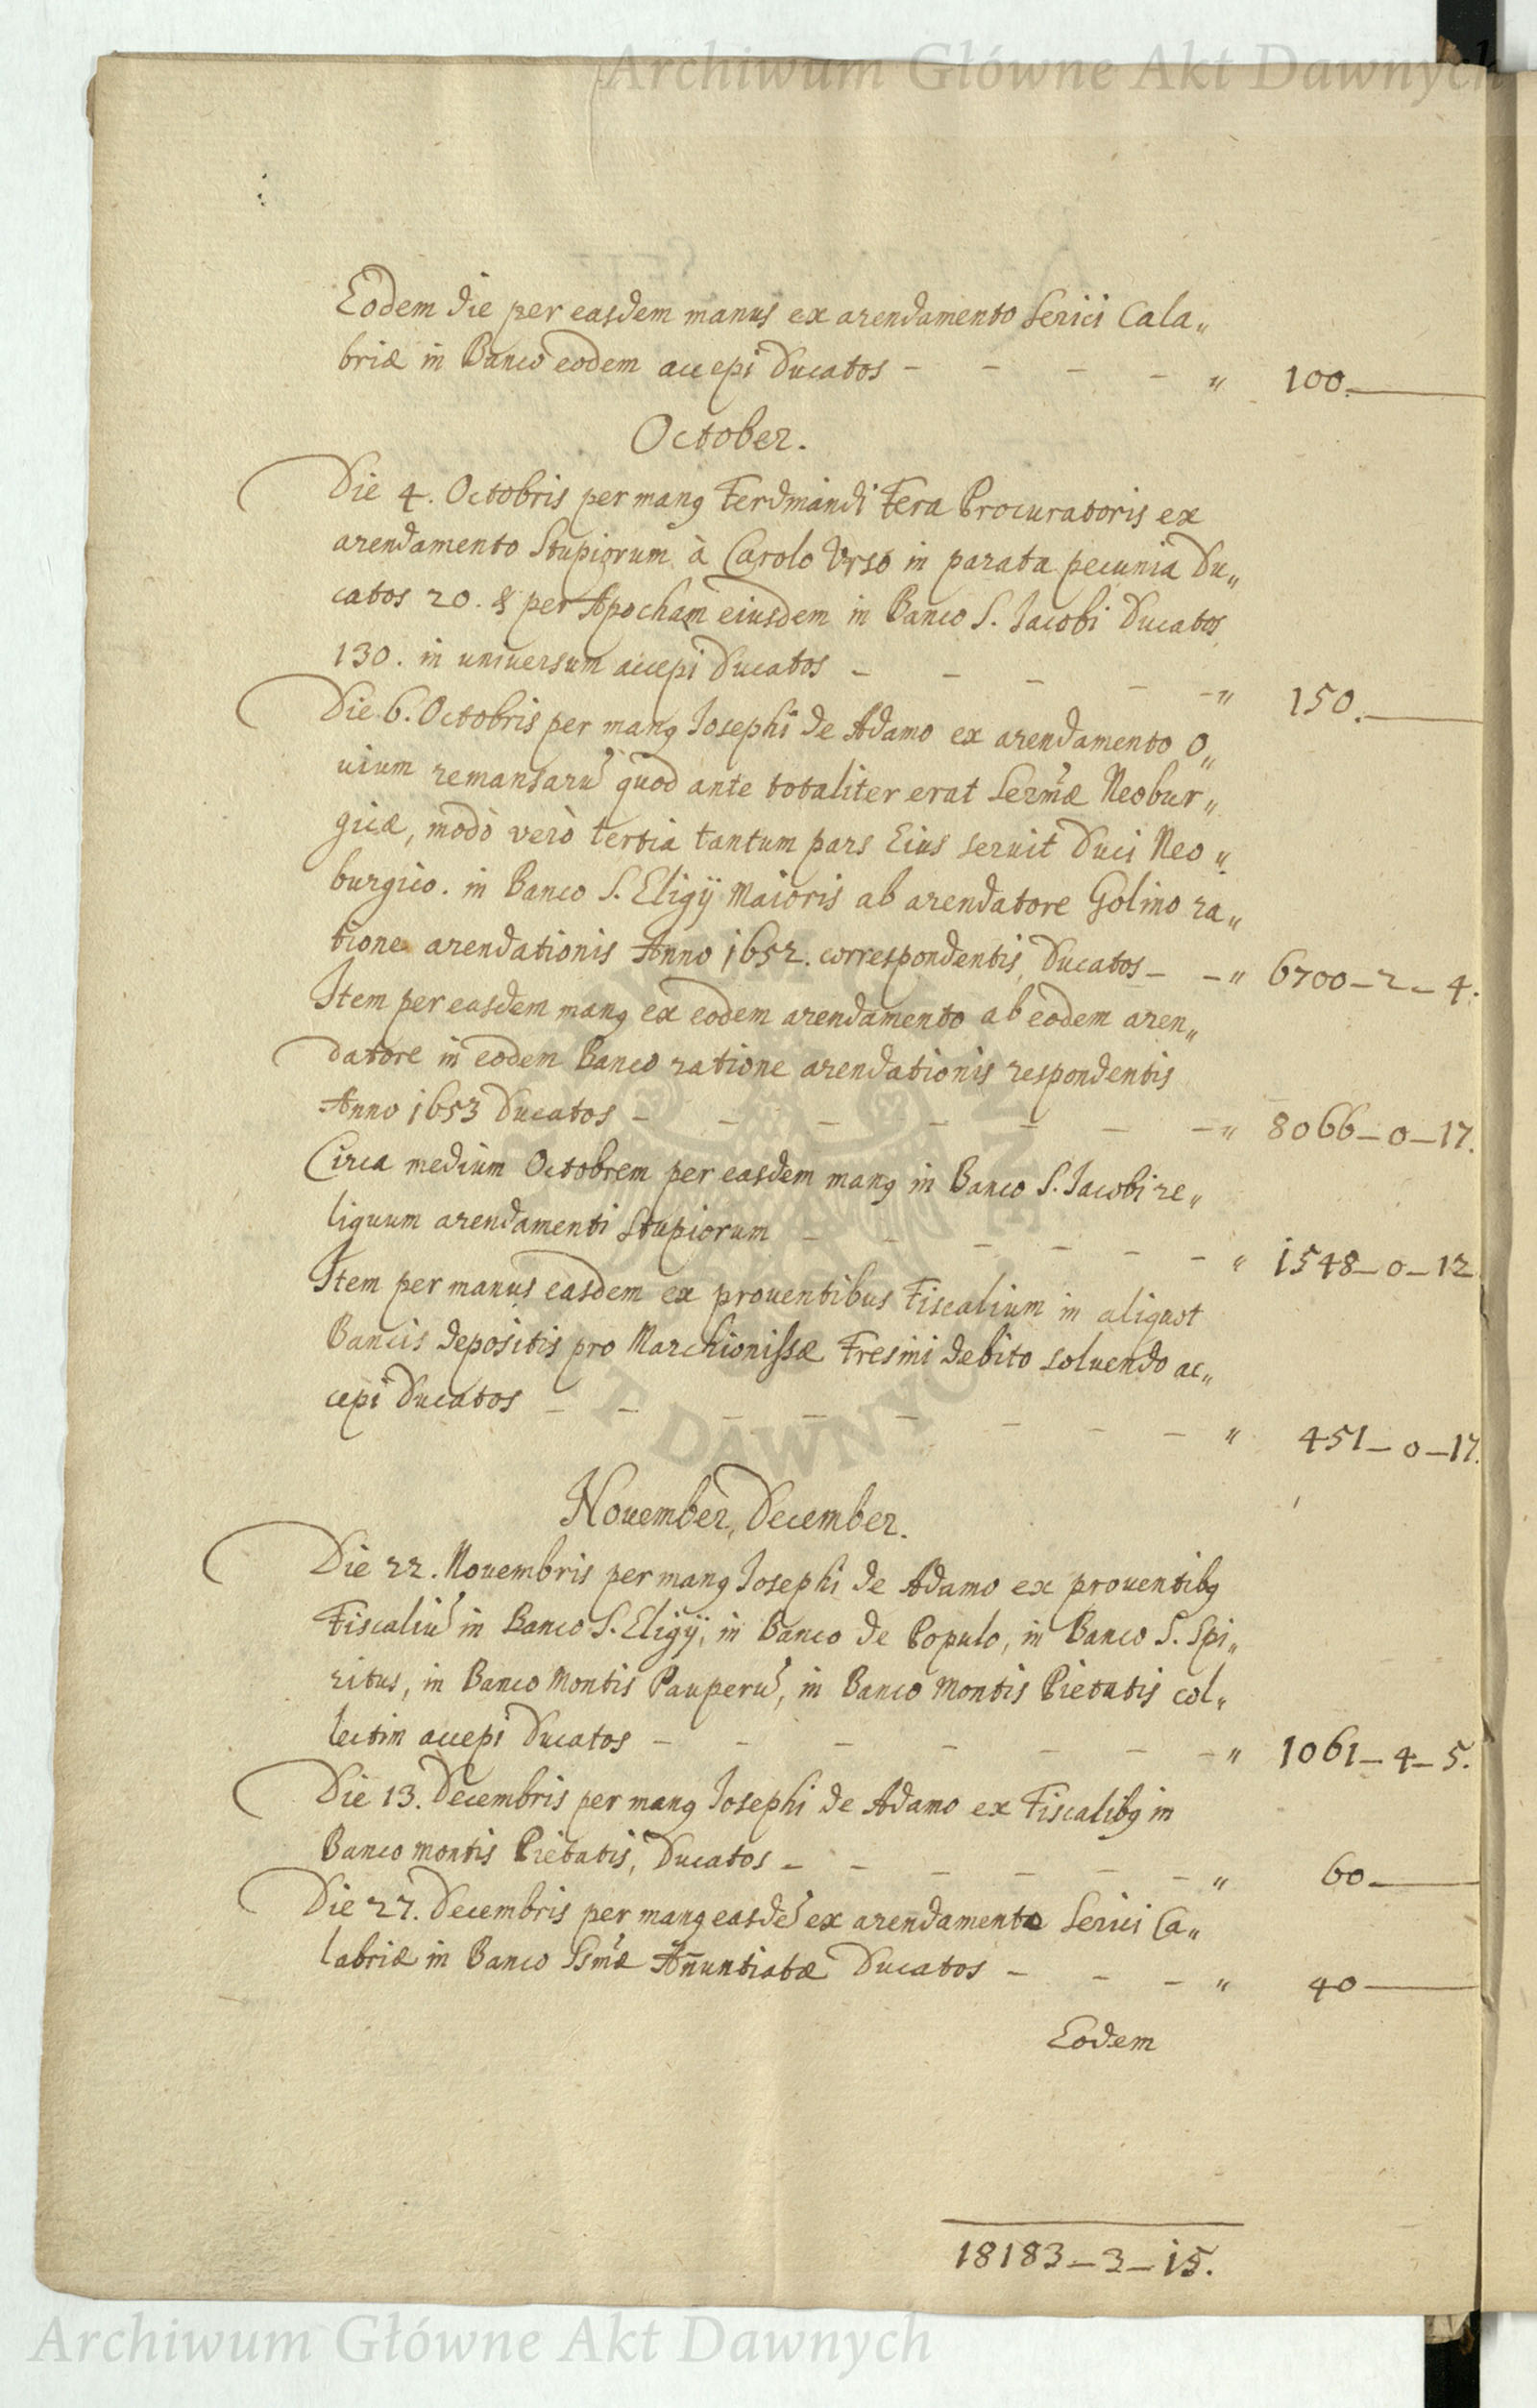 Archiwum Główne Akt Dawnych
Eodem die per easdem manus ex arendamento Serici Cala„
briæ in Banco eodem accepi Ducatos – – – – „ 100.
October.
Die 4. Octobris per manq Ferdinandi Fera Procuratoris ex
arendamento Stupiorum à Carolo Urso in parata pecunia Du„
catos 20. & per Apocham eiusdem in Banco S. Jacobi Ducatos
130. in universum accepi Ducatos – – – – – „ 150.
Die 6. Octobris per manq Josephi de Adamo ex arendamento O„
uium remansarũ quod ante totaliter erat Serm̃æ Neobur„
gicæ, modò verò tertia tantum pars Eius seruit Duci Neo„
burgico. in Banco S. Eligÿ Maioris ab arendatore Golino ra„
tione arendationis Anno 1652. correspondentis, Ducatos – – „ 6700–2–4.
Item per easdem manq ex eodem arendamento ab eodem aren„
datore in eodem Banco ratione arendationis respondentis
Anno 1653 Ducatos – – – – – – – „ 8066–0–17.
Circa medium Octobrem per easdem manq in Banco S. Jacobi re„
liquum arendamenti Stupiorum – – – – – – „ 1548–0–12
Item per manus easdem ex prouentibus Fiscalium in aliquot
Bancis depositis pro Marchionissæ Fresini debito soluendo ac„
cepi Ducatos – – – – – – – – „ 451–0–17.
Nouember, December.
Die 22. Nouembris per manq Josephi de Adamo ex prouentibq
Fiscaliũ in Banco S. Eligÿ, in Banco de Populo, in Banco S. Spi„
ritus, in Banco Montis Pauperũ, in Banco Montis Pietatis col„
lectim accepi Ducatos – – – – – – – „ 1061–4–5.
Die 13. Decembris per manq Josephi de Adamo ex Fiscalibq in
Banco Montis Pietatis, Ducatos – – – – – – „ 60
Die 27. Decembris per manq easdẽ ex arendamento Serici Ca„
labriæ in Banco Ssm̃æ An̄untiatæ Ducatos – – – „ 40
Eodem
18183–3–15.
Archiwum Główne Akt Dawnych